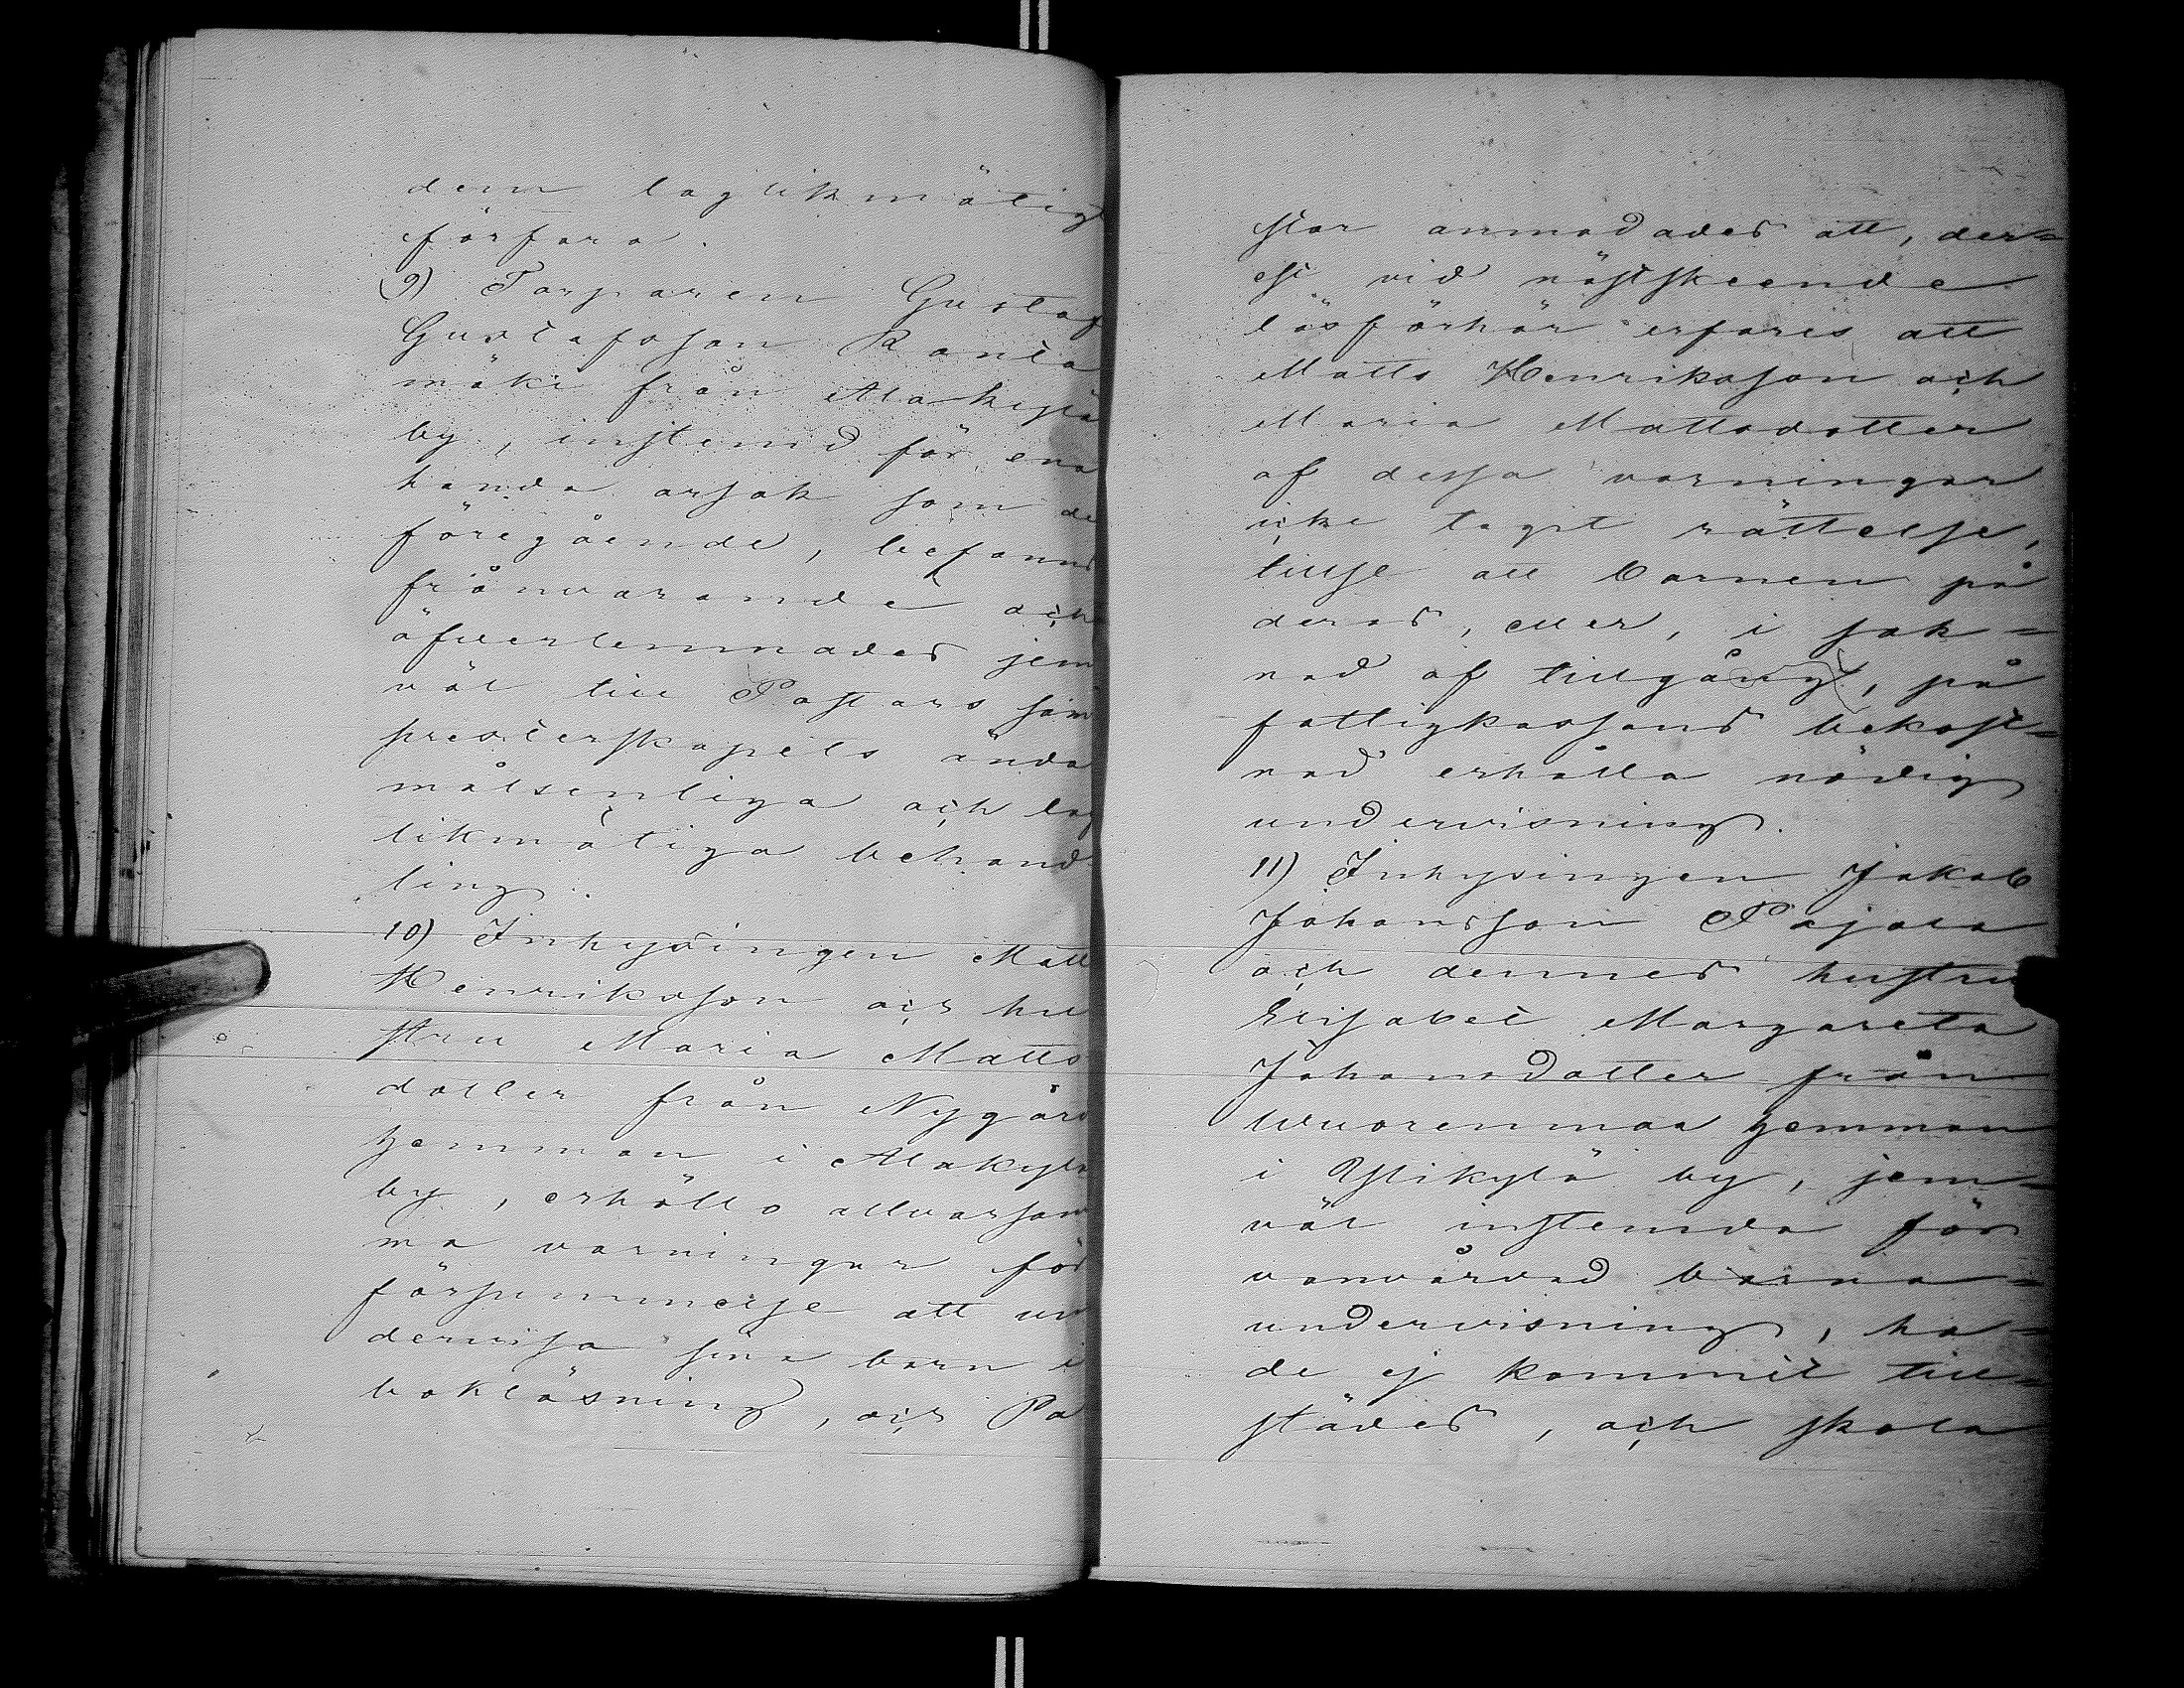 dem laglikmätigt
förfara.
9) Torparen Gustaf
Gustafsson Ranta
mäki från Alakylä
by, instemd för ena
handa orsak som de
föregående, befanns
frånvarande och
öfverlemnades jem
väl till Pastors sam
presterskapets ända
målsenliga och lag
likmätiga behand
ling.
10) Inhysingen Matts
Henriksson och hu
stru Maria Matts
dotter från Nygård
hemman i Alakylä
by, erhöllo allvarsam
ma varningar för
försummelse att un
dervisa sina barn i
bokläsning, och Pa
stor anmodades att, der=
est vid nästskeende
läsförhör erfares att
Matts Henriksson och
Maria Mattsdotter
af dessa varningar
icke tagit rättelse,
tillse att barnen på
deras, eller, i sak=
nad af tillgång, på
fattigkassans bekost=
nad erhålla nödig
undervisning.
11) Inhysingen Jakob
Johansson Pajala
och dennes hustru
Elisabet Margareta
Johansdotter från
Wuorenmaa hemman
i Ylikylä by, jem=
väl instemda för
vanvårdad barna=
undervisning, ha=
de ej kommit till=
städes, och skola